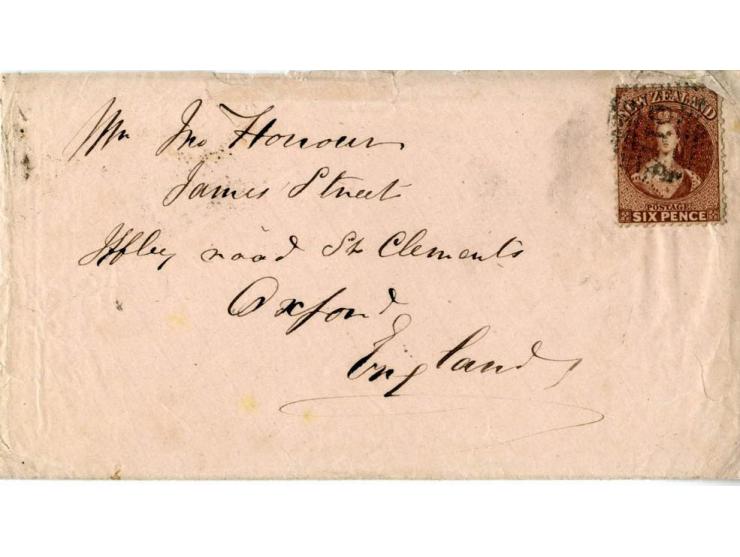 Mr Jno Honour
James Street
Iffley road St Clements
Oxford
England
NEW ZEALAND
POSTAGE
SIX PENCE